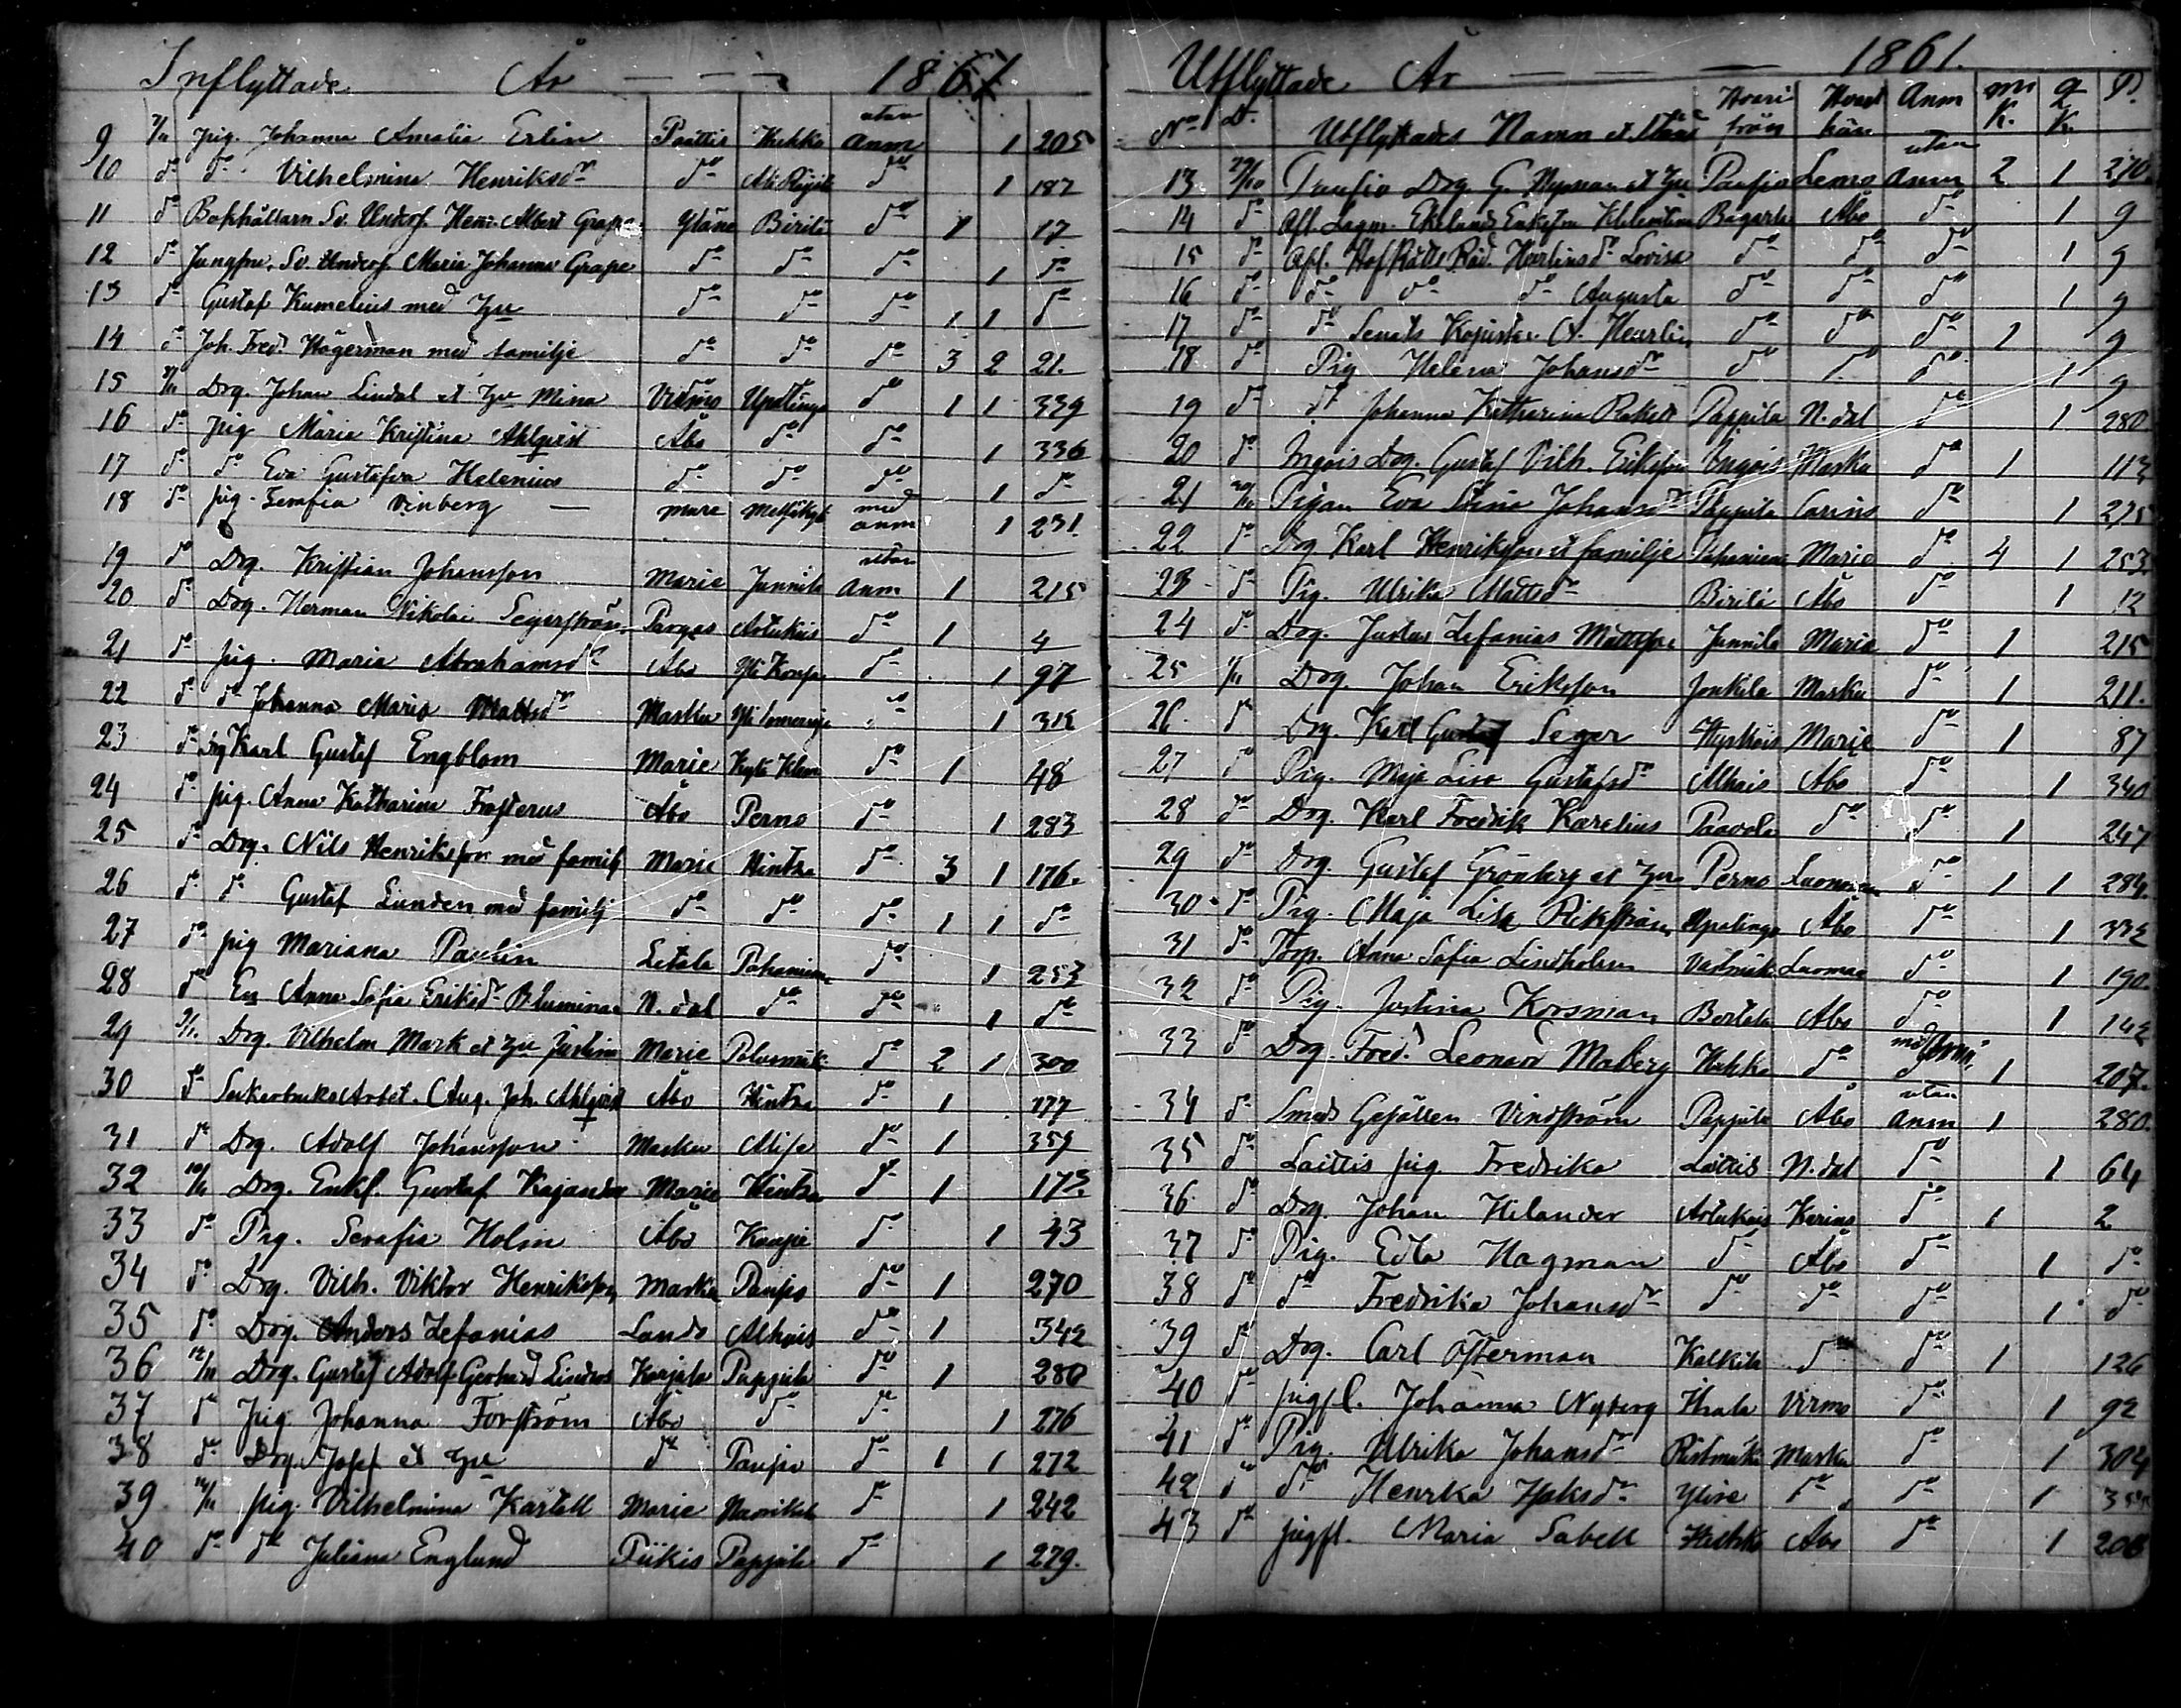 Inflyttade År 1861
9 7/11 pig. Johanna Amalia Erlin Paattis Kukko utan Anm 1 205
10 do do Vilhelmina Henriksdr do do 1 187
11 do Bokhållarn Sv. Undrof. Henr. Albert Grape Yläne Birila do 1 17
12 do Jungfru. Sv. Undrof Maria Johanna Grape do do do 1 do
13 do Gustaf Kumelius med hu do do do 1 1 do
14 do Joh. Fred. Högerman med familje do do do 3 2 21.
15 Drg. Johan Lindal et hu Mina Vidmo Upalinga do 1 1 339
16 do pig Maria Kristina Ahlqvist Åbo do do 1 336
17 do do Eva Gustafva Helenius do do do 1 do
18 do pig. Serafia Vinberg — Marie med anm 1 231.
19 do Drg. Kristian Johansson Marie Junnila utan Anm 1 215
20 do Drg. Herman Nikolai Segerström Pargas Artukais do 1 4
21 do pig. Maria Abrahamsdr Åbo do 1 97
22 do do Johanna Maria Mattsdr Masku do 1 312
23 do drg Karl Gustaf Engblom Marie do 1 48
24 do pig. Anna Katharina Frosterus Åbo Perno do 1 283
25 do Drg. Nils Henriksson med familj Marie Hintsa do 3 1 176.
26 do do Gustaf Lunden med familj do do do 1 1 do
27 do pig Mariana Paulin Letala Pahaniemi do 1 253
28 do Anna Sofia Eriksdr N. dal do do 1 do
29 Drg. Vilhelm Mark et hu Justina Marie do 2 1 300
30 do Sukerbruks Arbet. Aug. Joh. Ahlqvist Åbo Hintsa do 1 177
31 do Drg. Adolf Johansson Masku do 1 359
32 10/11 Drg. Enkl. Gustaf Kajander Marie Hintsa do 1 175.
33 do Pig. Serafia Holm Åbo do 1 43
34 do Drg. Vilh. Viktor Henriksson Masku Pansio do 1 270
35 do Drg. Anders Zefanias Lundo Alhais do 1 342
36 12/11 Drg. Gustaf Adolf Gerhard Linders Karjala Pappila do 1 280
37 do Pig Johanna Forström Åbo do do 1 276
38 do Drg. et hu do Pansio do 1 1 272
39 pig. Vilhelmina Kartell Marie do 1 242
40 do do Juliana Englund Piikis Pappila do 1 279.
Utflyttade År 1861.
No D. Utflyttades Namn Hvarifrån Hvarthän Anm m K. q K. P.
13 29/10 Pansio Drg. G. Nyman et hu Pansio Lemo utan Anm 2 1 270.
14 do Afl. Lagm. Ekelunds Enkefru Klementina Bagarla Åbo do 1 9
15 do Afl. Hof Rätts Råd. do Lovisa do do do 1 9
16 do do do do Augusta do do do 1 9
17 do do Senats do do do 1 9
18 do Pig Helena Johansdr do do do 1 9
19 do do Johanna Katharina Pappila N. dal do 1 280
20 do Ingois Drg. Gustaf Vilh. Eriksson Ingois Masku do 1 113
21 Pigan Eva Stina Johansdr Pappila Carins do 1 275
22 do Drg Karl Henriksson et familje Pahaniemi Marie do 4 1 253.
23 do Pig. Ulrika Mattsdr Birila Åbo do 1 12
24 do Drg. Justus Zefanias Mattsson Junnila Maria do 1 215
25 1/11 Drg. Johan Eriksson Jonkela Masku do 1 211.
26. do Drg. Karl Gustaf Seger Hyrköis Marie do 1 87
27 do Pig. Maja Lisa Gustafsdr Alhais Åbo do 1 340
28 do Drg. Karl Fredrik Karelius Paavola do do 1 247
29 do Drg. Gustaf Grönberg et hu Perno do 1 1 284.
30 do Pig. Maja Lisa Rikström Upalinga Åbo do 1 332
31 do Torp. Anna Sofia Lindholm do 1 190.
32 do Pig. Justina Korsman Bertala Åbo do 1 142
33 do Drg. Fred. Leonard Moberg Kukko do med Anm. 1 207.
34 do Smeds Gesällen Vindström Pappila Åbo utan Anm 1 280.
35 do Laittis pig. Fredrika Laittis N. dal do 1 64
36 do Drg. Johan Hilander Artukais do 1 2
37 do Pig. Edla Hagman do Åbo do 1 do
38 do do Fredrika Johansdr do do do 1 do
39 do Drg. Carl Österman do do 1 126
40 do pigfl. Johanna Nyberg Ihala Virmo do 1 92
41 do Pig. Ulrika Johansdr Ristimäki Masku do 1 304
42 do do Ylive do do 1
43 do pigfl. Maria Sabell Kukko Åbo do 1 208